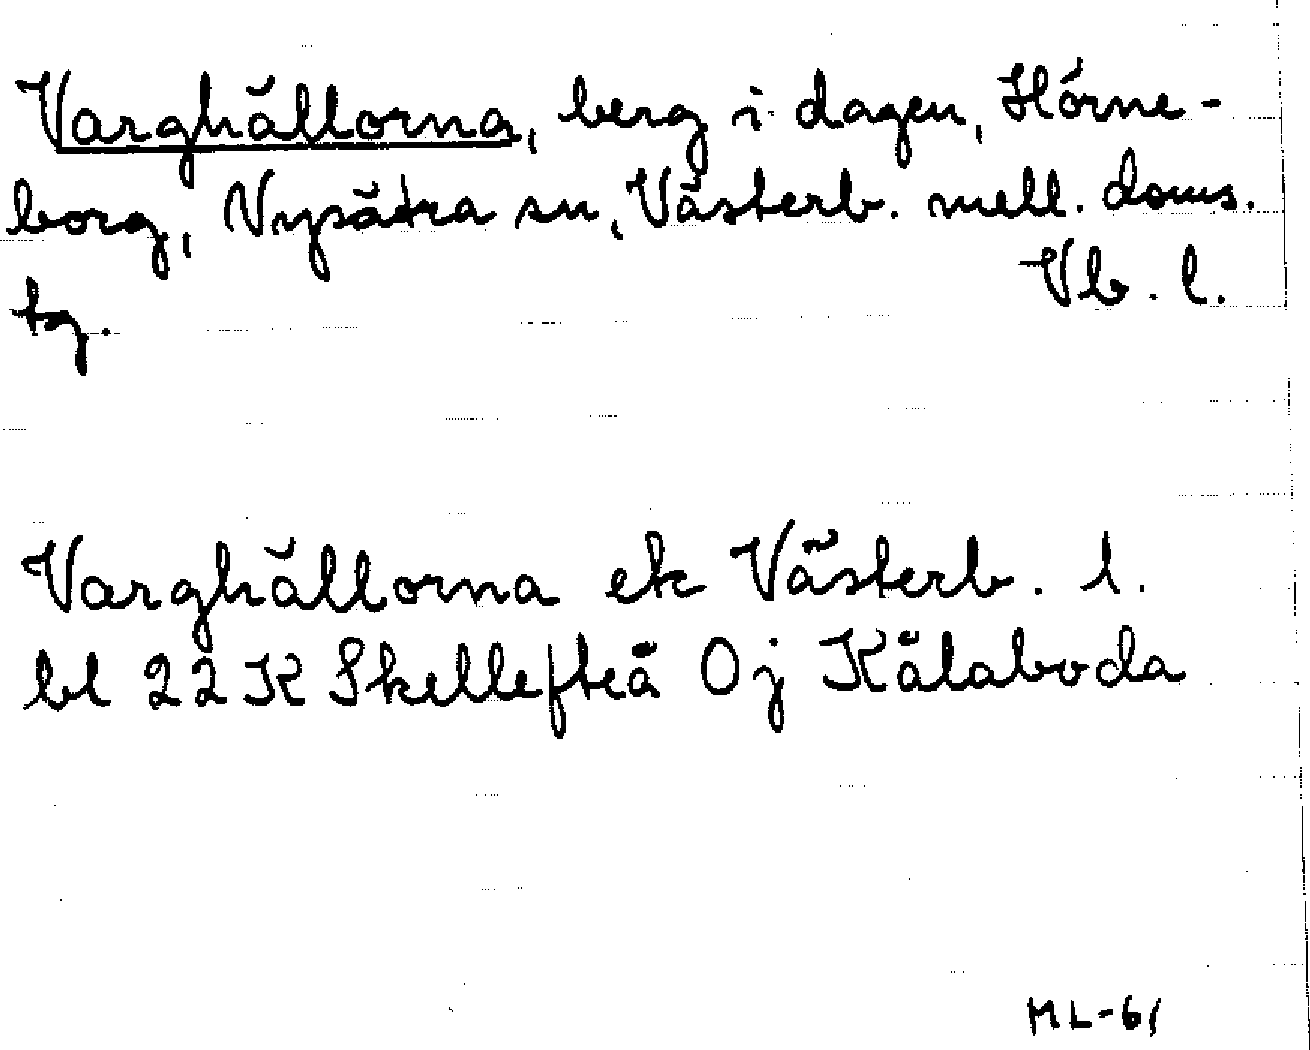 Varghällorna, berg i dagen, Hörne-
borg, Nysätra sn, Västerb. mell. doms.
tg. Vb. l.
Varghällorna ek Västerb. l.
bl 22 K Skellefteå 0j Kålaboda
ML-61